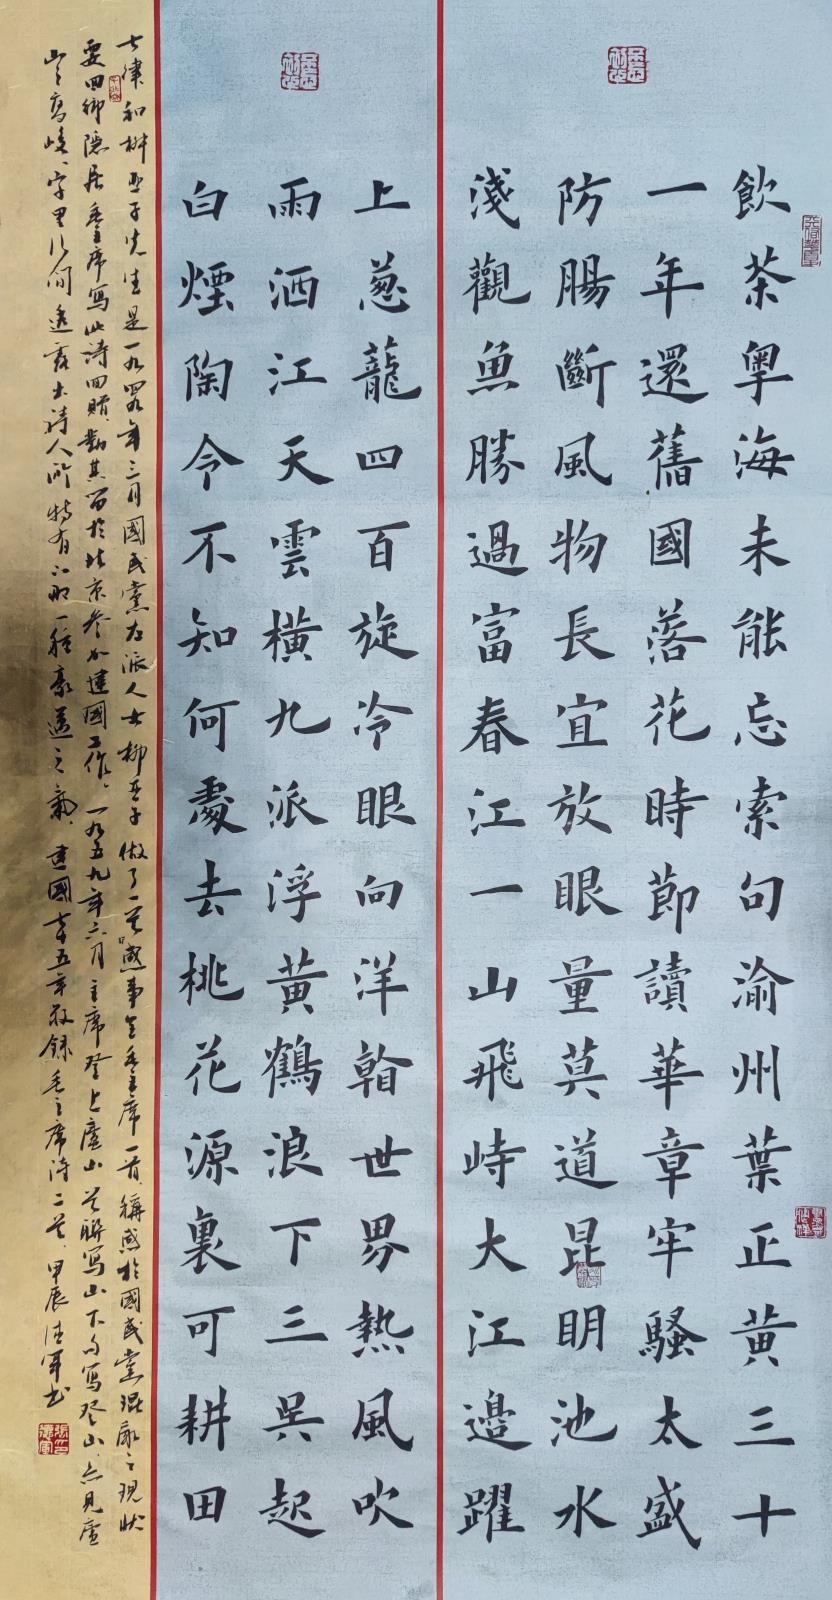 飲茶粵海未能忘索句渝州葉正黃三十
一年還舊國落花時節讀華章牢騷太盛
防腸斷風物長宜放眼量莫道昆明池水
淺觀魚勝過富春江一山飛峙大江邊躍
上葱蘢四百旋冷眼向洋看世界熱風吹
雨洒江天雲橫九派浮黃鶴浪下三吳起
白煙陶令不知何處去桃花源裏可耕田
七律和柳亞子先生是一九四九年三月國民黨左派人士柳亞子做了一首感事呈毛主席一首稱感於國民黨現狀
要回鄉隱居毛主席寫此詩回贈勸其留於北京參加建國工作一九五九年六月主席登上廬山首聯寫山下句寫登山亦見廬
山之高峻字里行間透露出詩人所特有的一種豪邁之氣建國七十五年敬錄毛主席詩二首甲辰德軍書